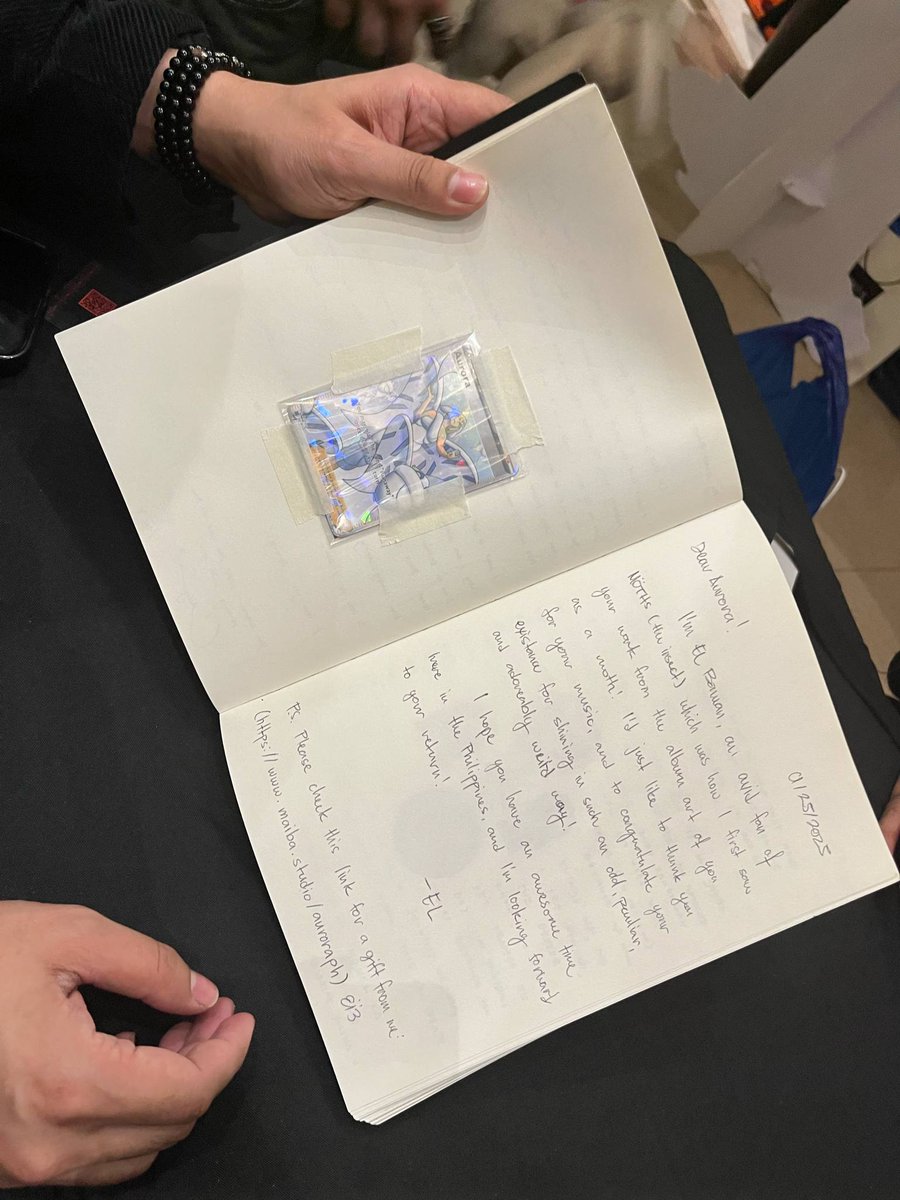 Aurora
01/25/2025
Dear Aurora!
I'm El an avid fan of
MÖTHS (the insect) which was how I first saw
your work from the album art of you
as a moth! I'd just like to thank you
for your music, and to congratulate your
existance for shining in such an odd, peculiar,
and adoreably weird way!
I hope you have an awesome time
here in the Philippines, and I'm looking forward
to your return!
—EL
P.S. Please check this link for a gift from me:
(https://www.maiba.studio/auroraph)